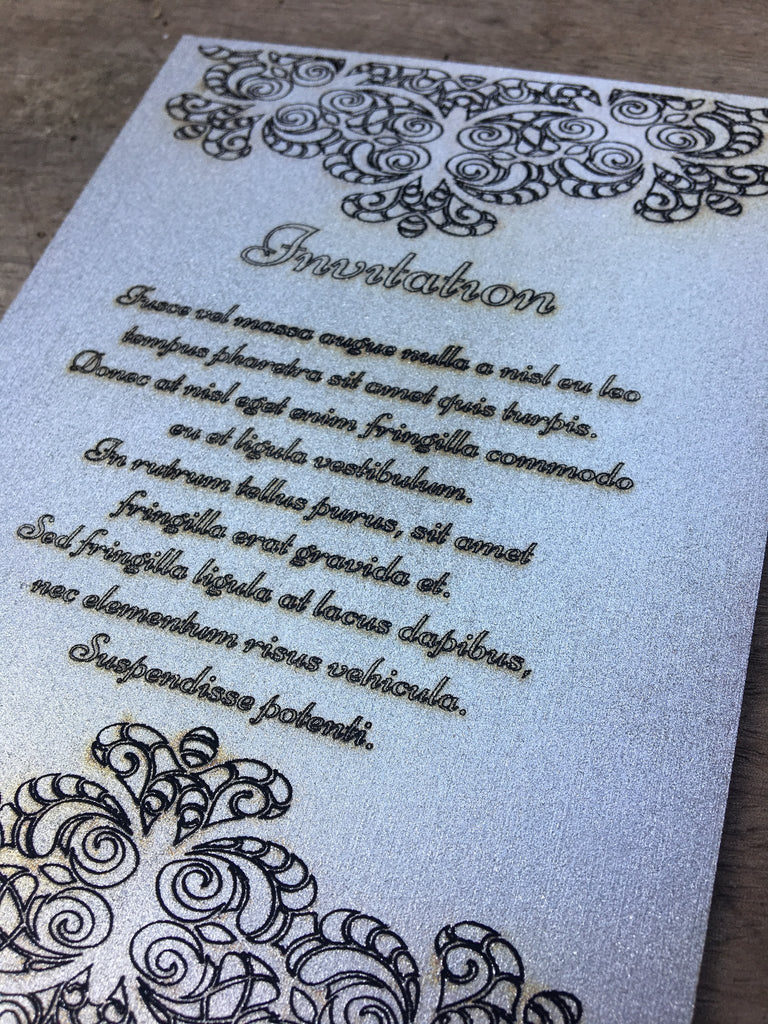 Invitation
Fusce vel massa augue nulla a nisl eu leo
tempus pharetra sit amet quis turpis.
Donec at nisl eget enim fringilla commodo
eu et ligula vestibulum.
In rutrum tellus purus, sit amet
fringilla erat gravida et.
Sed fringilla ligula at lacus dapibus,
nec elementum risus vehicula.
Suspendisse potenti.